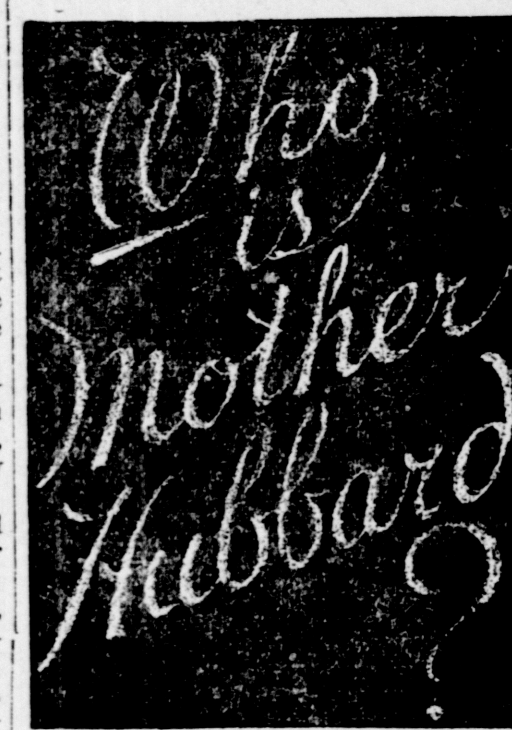 Who
is
Mother
Hubbard
?